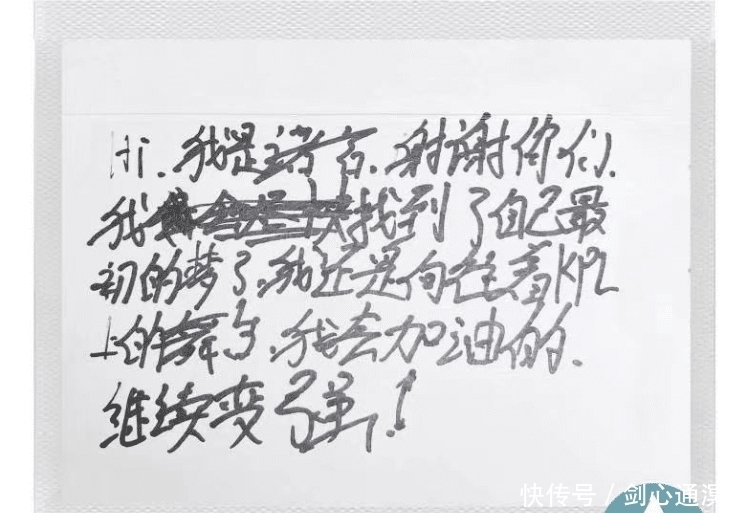 Hi. 我是诺言. 谢谢你们.
我找到了自己最
初的梦了.我还是向往着KPL
上的舞台.我会加油的.
继续变强!
快传号/剑心通溟